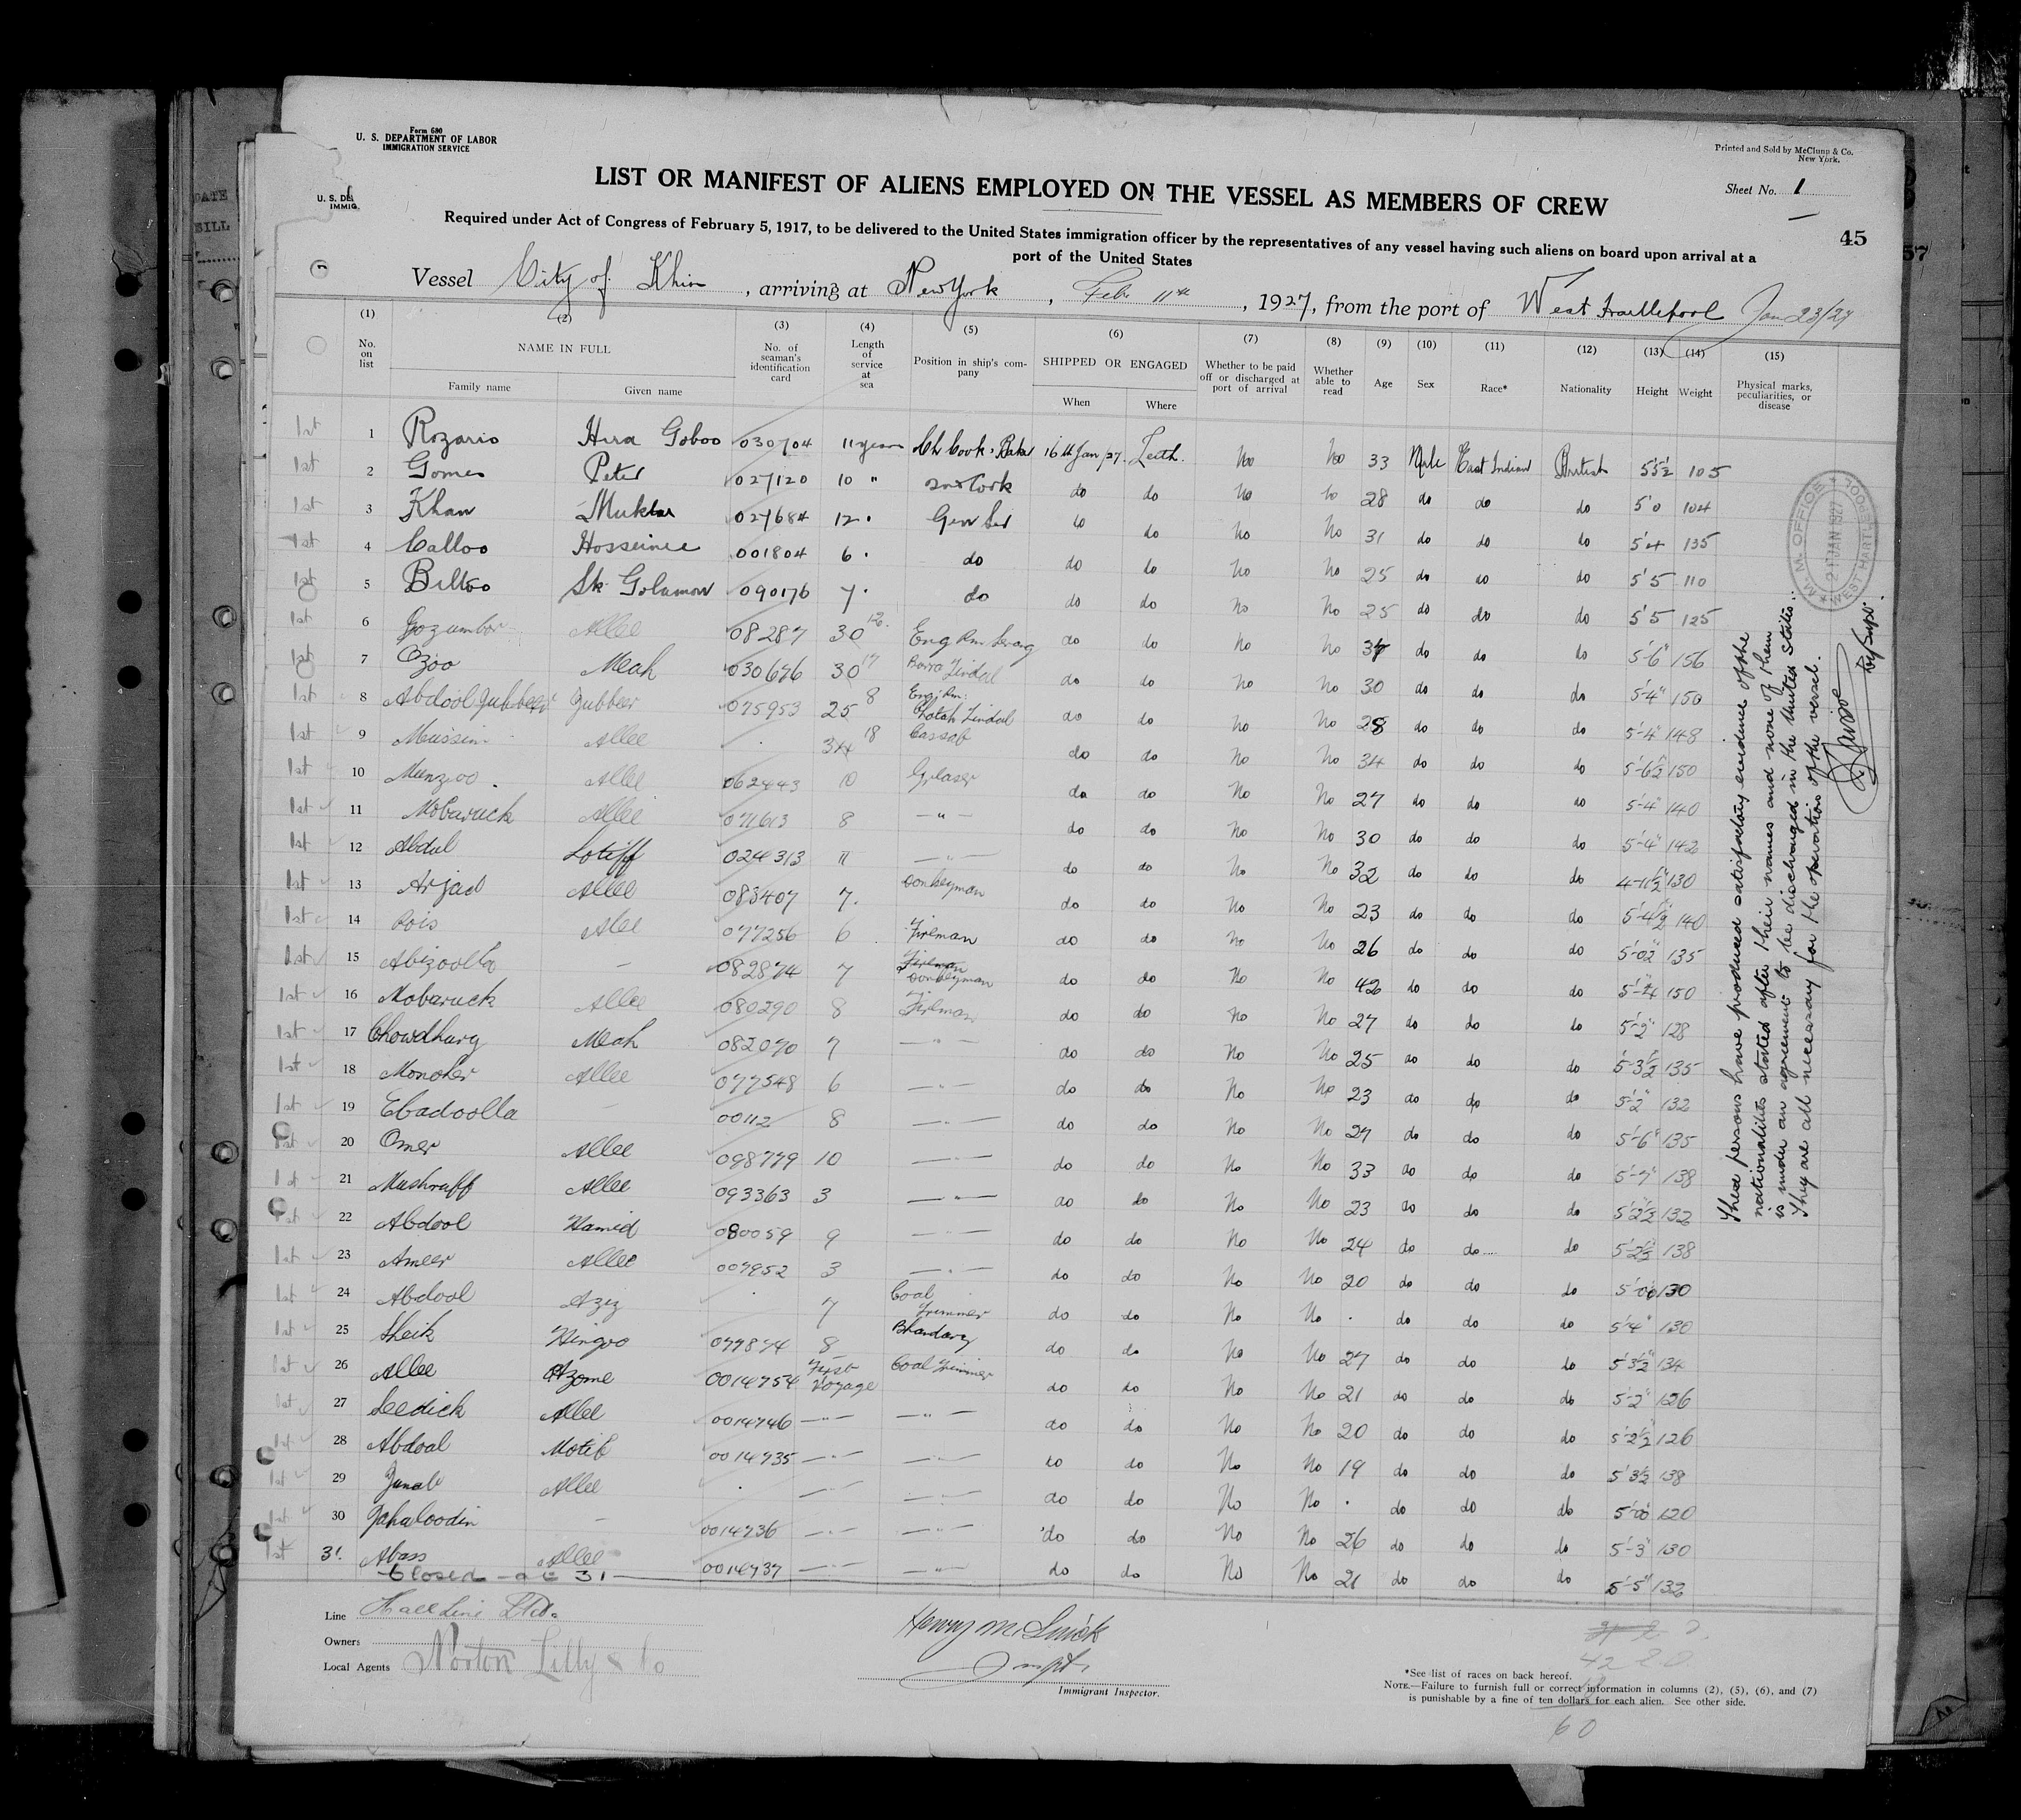 Form 680
U. S. DEPARTMENT OF LABOR
IMMIGRATION SERVICE
Printed and Sold by McClunn & Co.
New York.
Sheet No. 1
LIST OR MANIFEST OF ALIENS EMPLOYED ON THE VESSEL AS MEMBERS OF CREW
Required under Act of Congress of February 5, 1917, to be delivered to the United States immigration officer by the representatives of any vessel having such aliens on board upon arrival at a
port of the United States
45
Vessel City of Khios, arriving at New York, Feb 11th, 1927, from the port of West Hartlepool Jan 23/27
(1) (2) (3) (4) (5) (6) (7) (8) (9) (10) (11) (12) (13) (14) (15)
No. on list NAME IN FULL No. of seaman's identification card Length of service at sea Position in ship's company SHIPPED OR ENGAGED Whether to be paid off or discharged at port of arrival Whether able to read Age Sex Race* Nationality Height Weight Physical marks, peculiarities, or disease
Family name Given name When Where
1st 1 Rozario Hira Goboo 030704 11 years Ch Cook & Baker 16th Jan /27. Leith. No No 33 Male East Indian British 5'5½ 105
1st 2 Gomes Peter 027120 10 " 2nd Cook do do No No 28 do do do 5'0 104
1st 3 Khan Muktar 027684 12 " Gen Ser do do No No 31 do do do 5'4 135
1st 4 Calloo Hosseinee 001804 6 " do do do No No 25 do do do 5'5 110
1st 5 Biltoo Sk. Golamon 090176 7 " do do do No No 25 do do do 5'5 125
1st 6 Gozumbor Allee 08287 30 Eng Rm Serang do do No No do do do 5'-6" 156
1st 7 Ozoo Meah 030676 30 17 Borra Tindal do do No No 30 do do do 5'-4" 150
1st 8 Abdool Jubbeer Jubbeer 075953 25 8 Eng. Rm. Chotah Tindal do do No No 28 do do do 5'-4" 148
1st 9 Mussim Allee 34 18 Cassab do do No No 34 do do do 5'-6½ 150
1st 10 Munzoo Allee 062443 10 Greaser do do No No 27 do do do 5'-4" 140
1st 11 Mobaruck Allee 071613 8 — " — do do No No 30 do do do 5'-4" 142
1st 12 Abdul Lotiff 024313 11 — " — do do No No 32 do do do 4-11½ 130
1st 13 Arjad Allee 083407 7 Donkeyman do do No No 23 do do do 5'-4½ 140
1st 14 Rois Alee 077256 6 Fireman do do No No 26 do do do 5'-02" 135
1st 15 Abizoolla — 082874 7 Fireman Donkeyman do do No No 42 do do do 5'-4 150
1st 16 Mobaruck Allee 080290 8 Fireman do do No No 27 do do do 5'-2" 128
1st 17 Chowdhury Meah 082070 7 — " — do do No No 25 do do do 5'-3½ 135
1st 18 Monoher Allee 077548 6 — " — do do No No 23 do do do 5'-2" 132
1st 19 Ebadoolla — 00112 8 — " — do do No No 27 do do do 5'-6" 135
1st 20 Omer Allee 098779 10 — " — do do No No 33 do do do 5'-7" 138
1st 21 Mushruff Allee 093363 3 — " — do do No No 23 do do do 5'-2½ 132
1st 22 Abdool Hamid 080059 9 — " — do do No No 24 do do do 5'-2½ 138
1st 23 Ameer Allee 007952 3 — " — do do No No 20 do do do 5'-00 130
1st 24 Abdool Aziz 7 Coal Trimmer do do No No do do do 5'-4" 130
1st 25 Sheik Hingoo 077874 8 Bhandary do do No No 27 do do do 5'-3½" 134
1st 26 Allee Azome 0014754 First Voyage Coal Trimmer do do No No 21 do do do 5'-2" 126
1st 27 Seedick Allee 0014746 — " — — " — do do No No 20 do do do 5'-2½ 126
1st 28 Abdoal Motib 0014735 — " — — " — do do No No 19 do do do 5'3½ 138
1st 29 Junab Allee — " — — " — do do No No do do do 5'-00 120
1st 30 Jahaloodin — 0014736 — " — — " — do do No No 26 do do do 5'-3" 130
1st 31 Abass Allee 0014737 — " — — " — do do No No 21 do do do 5'-5" 132
Closed - at 31
These persons have produced satisfactory evidence of the
nationalities stated after their names and none of them
is under an agreement to be discharged in the United States.
They are all necessary for the operation of the vessel.
Supt.
M. M. OFFICE
21 JAN 1927
WEST HARTLEPOOL
Line Hall Line Ltd.
Owners
Local Agents Norton Lilly & Co
Immigrant Inspector.
*See list of races on back hereof.
NOTE.—Failure to furnish full or correct information in columns (2), (5), (6), and (7)
is punishable by a fine of ten dollars for each alien. See other side.
42
60